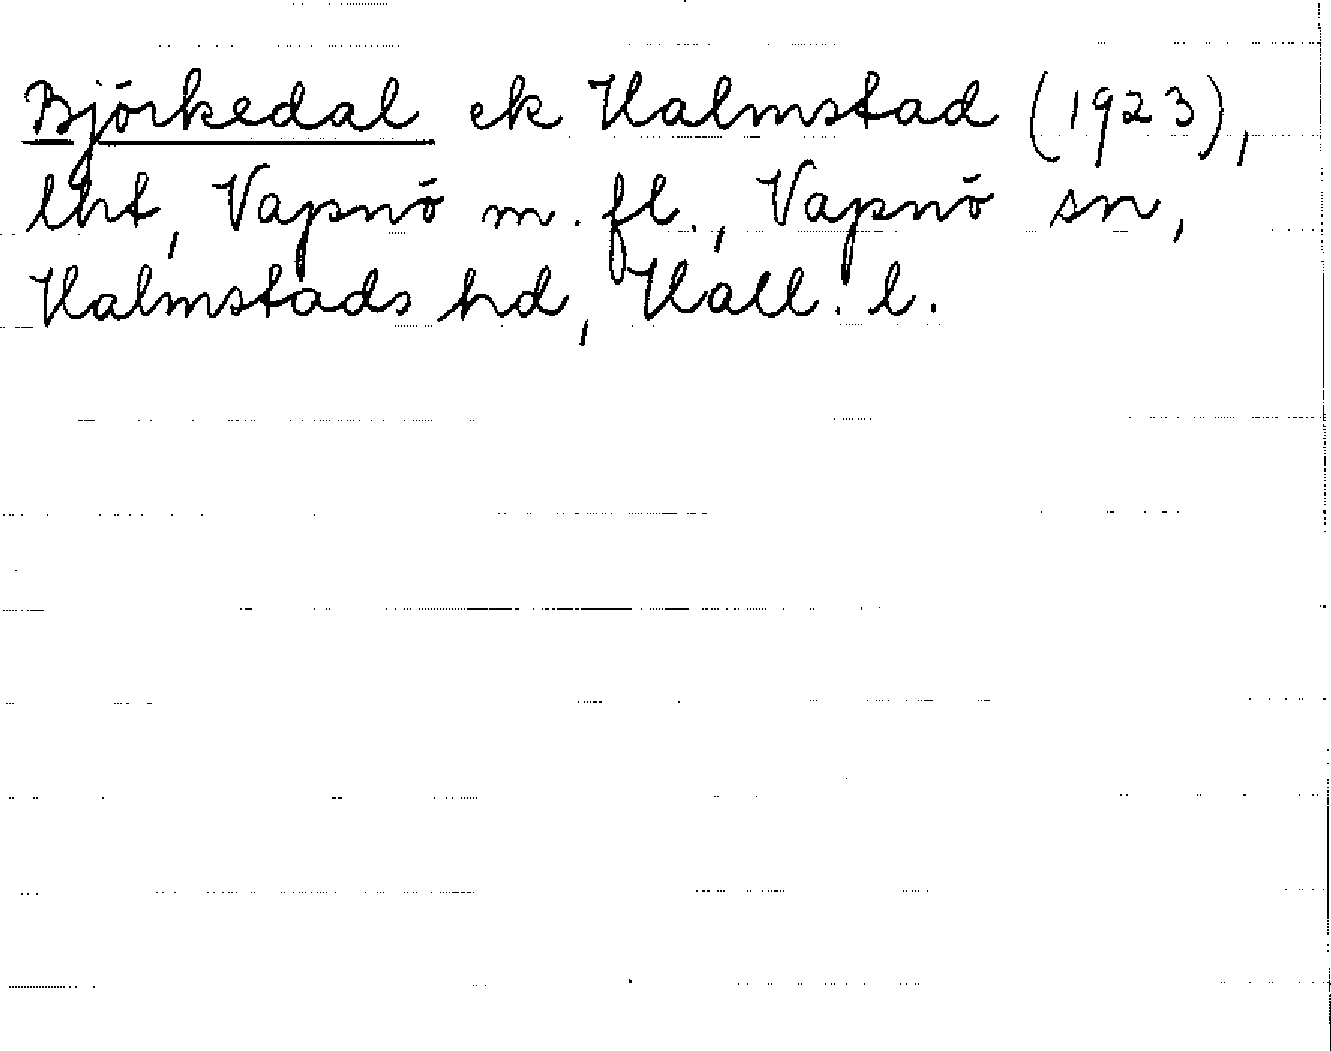 Björkedal ek Halmstad (1923),
lht, Vapnö m. fl., Vapnö sn,
Halmstads hd, Hall. l.